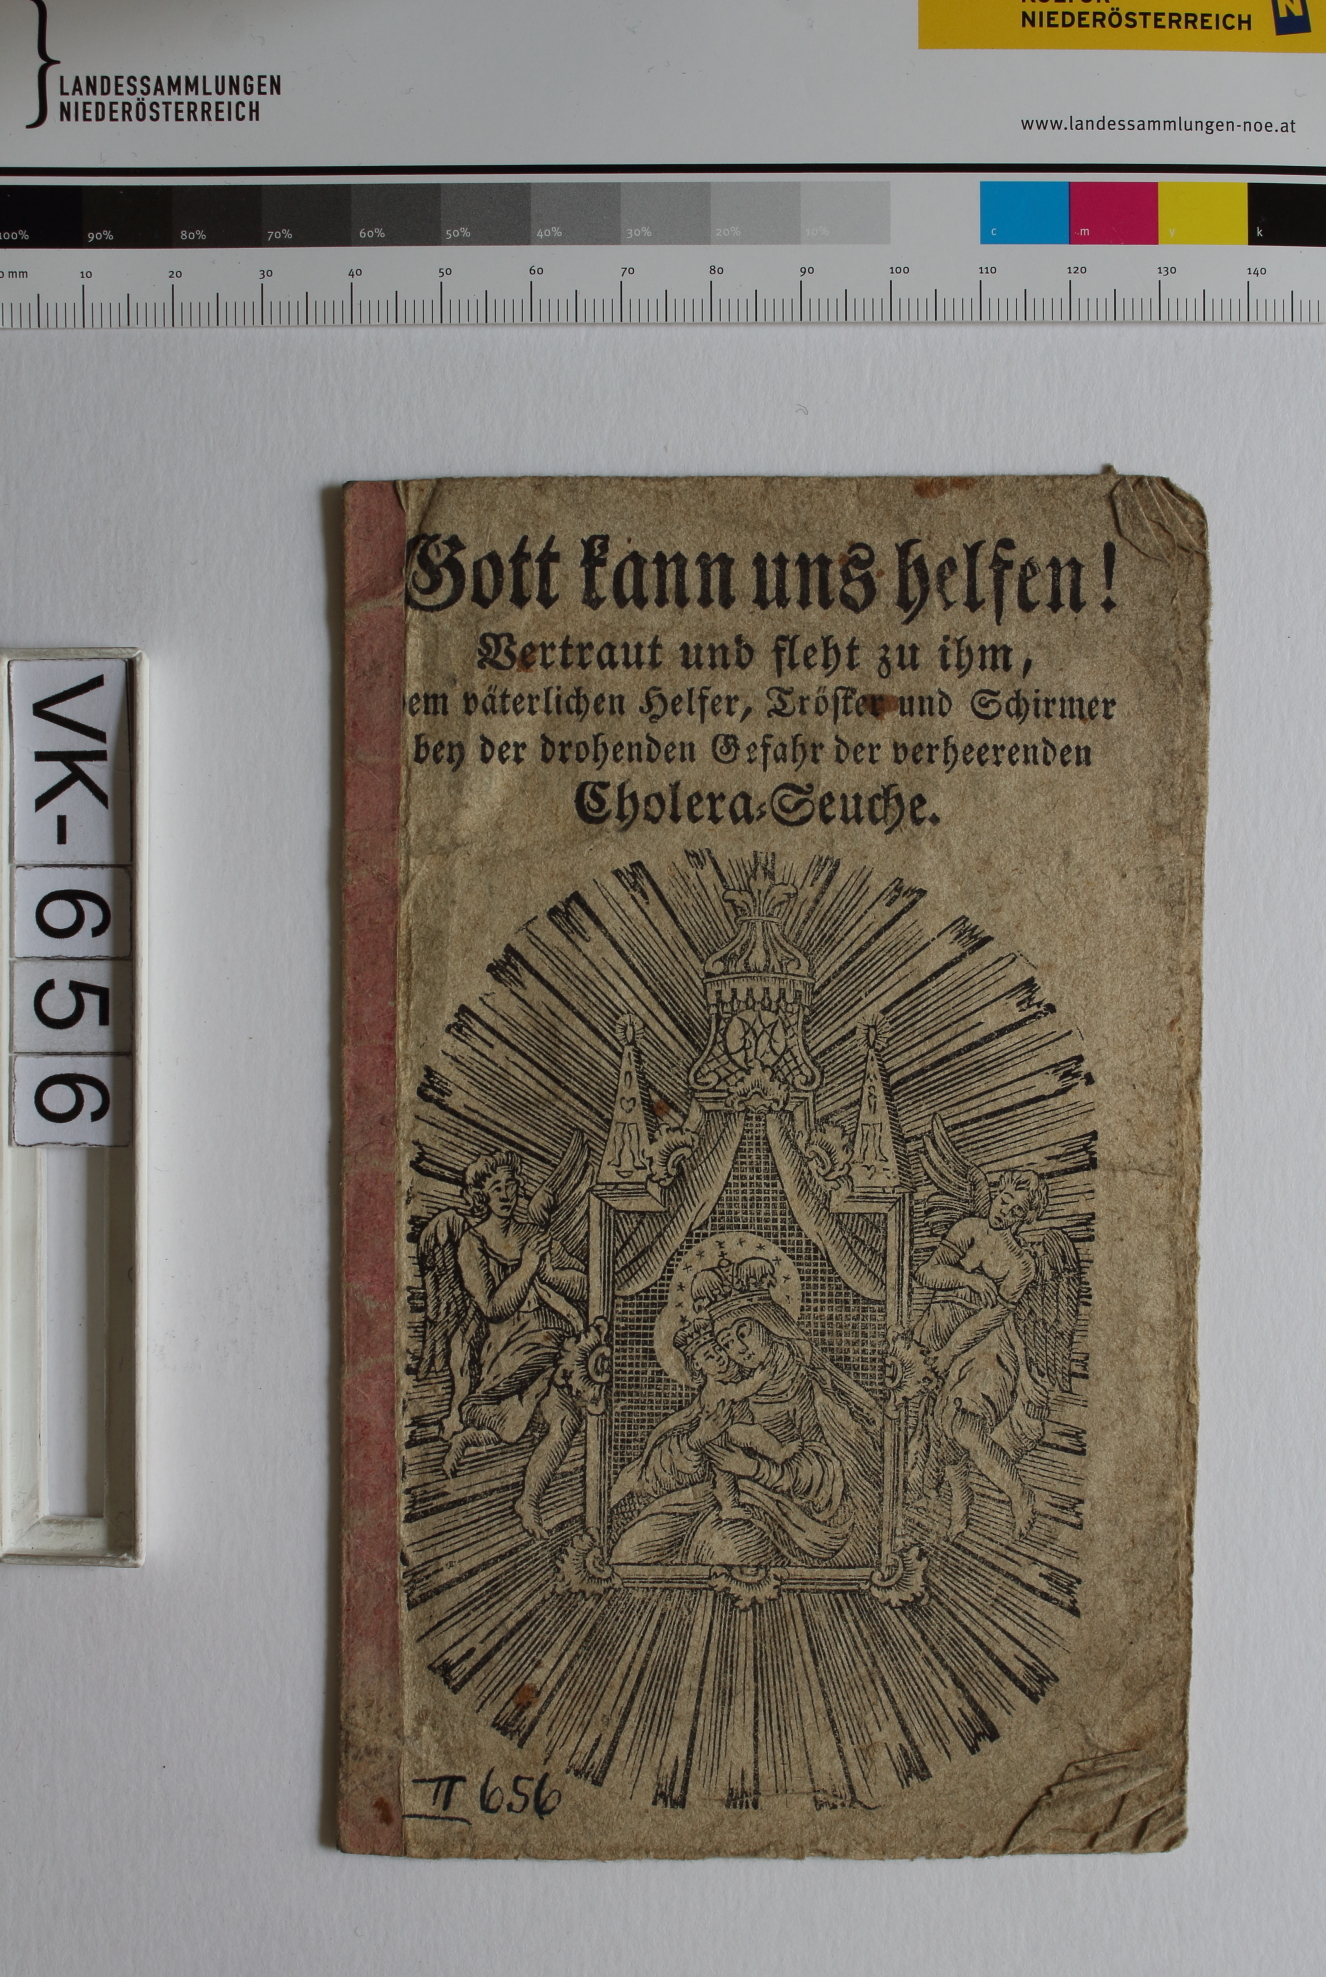 KULTUR
NIEDERÖSTERREICH
LANDESSAMMLUNGEN
NIEDERÖSTERREICH
www.landessammlungen-noe.at
100% 90% 80% 70% 60% 50% 40% 30% 20% 10% c m y k
0 mm 10 20 30 40 50 60 70 80 90 100 110 120 130 140
VK-656
Gott kann uns helfen!
Vertraut und fleht zu ihm,
em väterlichen Helfer, Tröster und Schirmer
bey der drohenden Gefahr der verheerenden
Cholera-Seuche.
II 656